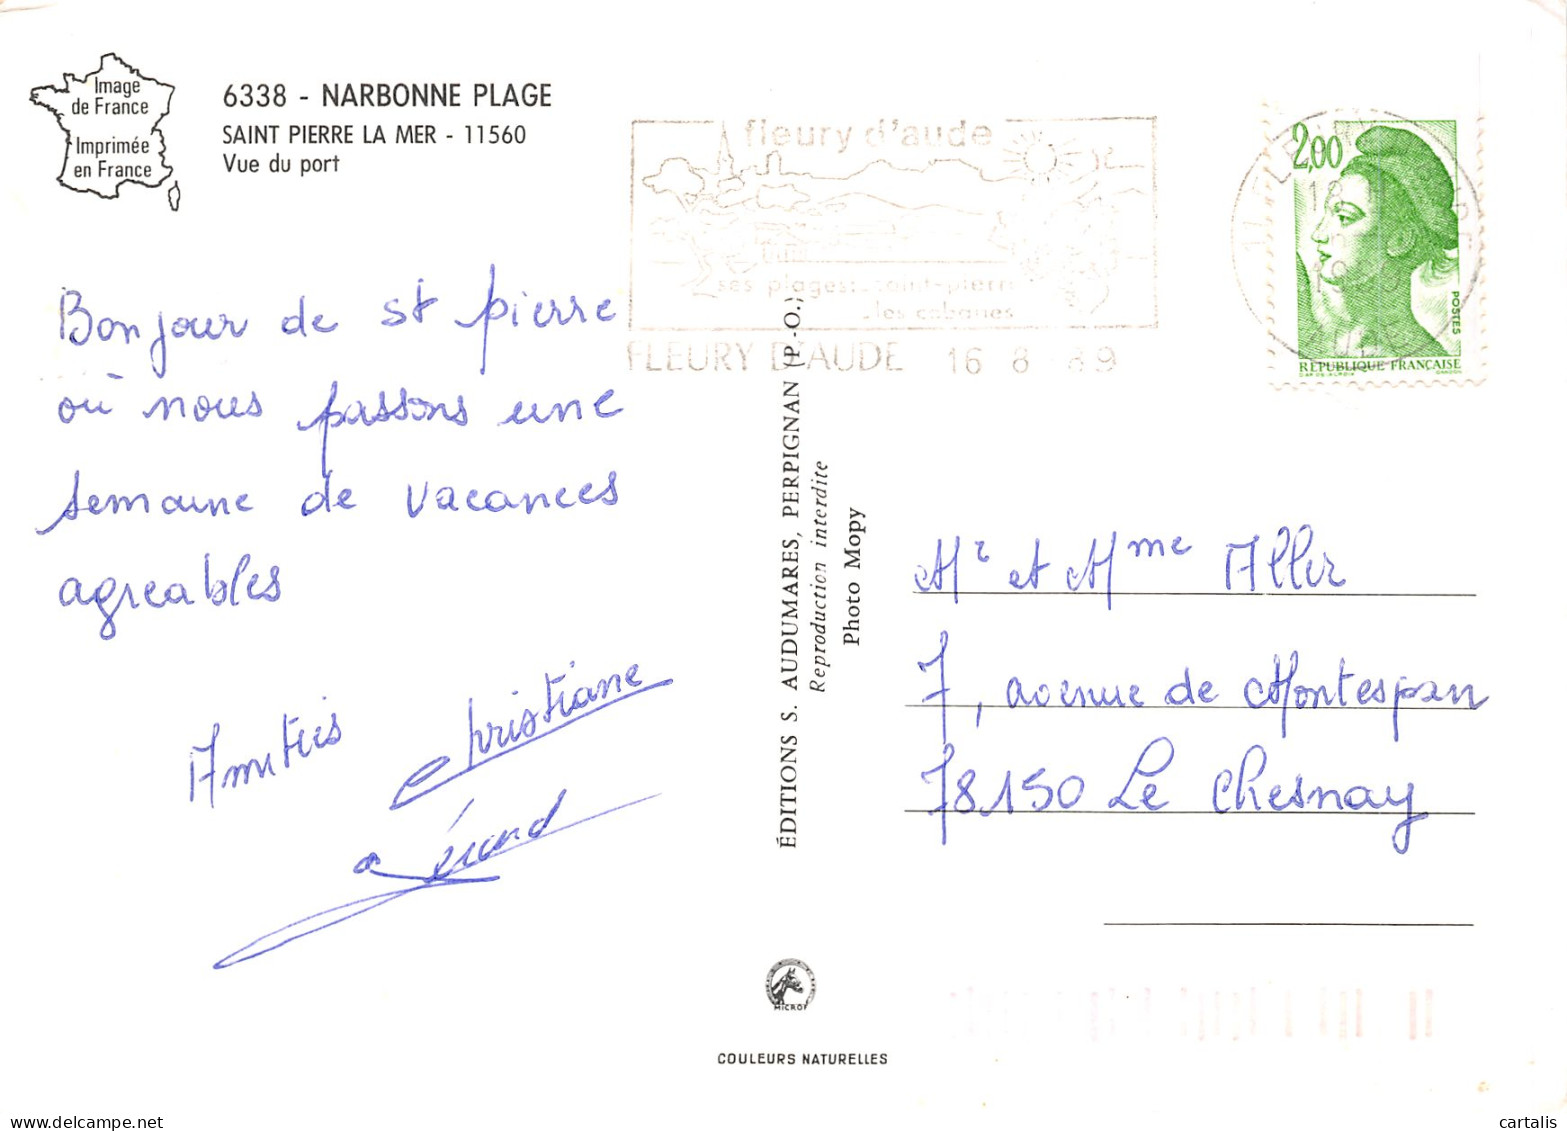 Image
de France
Imprimée
en France
6338 - NARBONNE PLAGE
SAINT PIERRE LA MER - 11560
Vue du port
fleury d'aude
ses plages: saint-pierre
les cabanes
FLEURY D'AUDE 16 8 89
2,00
POSTES
RÉPUBLIQUE FRANÇAISE
Bonjour de St pierre
où nous passons une
semaine de vacances
agreables
Amitiés Christiane
Gérard
ÉDITIONS S. AUDUMARES, PERPIGNAN (P.-O.)
Reproduction interdite
Photo Mopy
Mr et Mme Aller
7, avenue de Montespan
78150 Le Chesnay
MICRO
COULEURS NATURELLES
cartalis